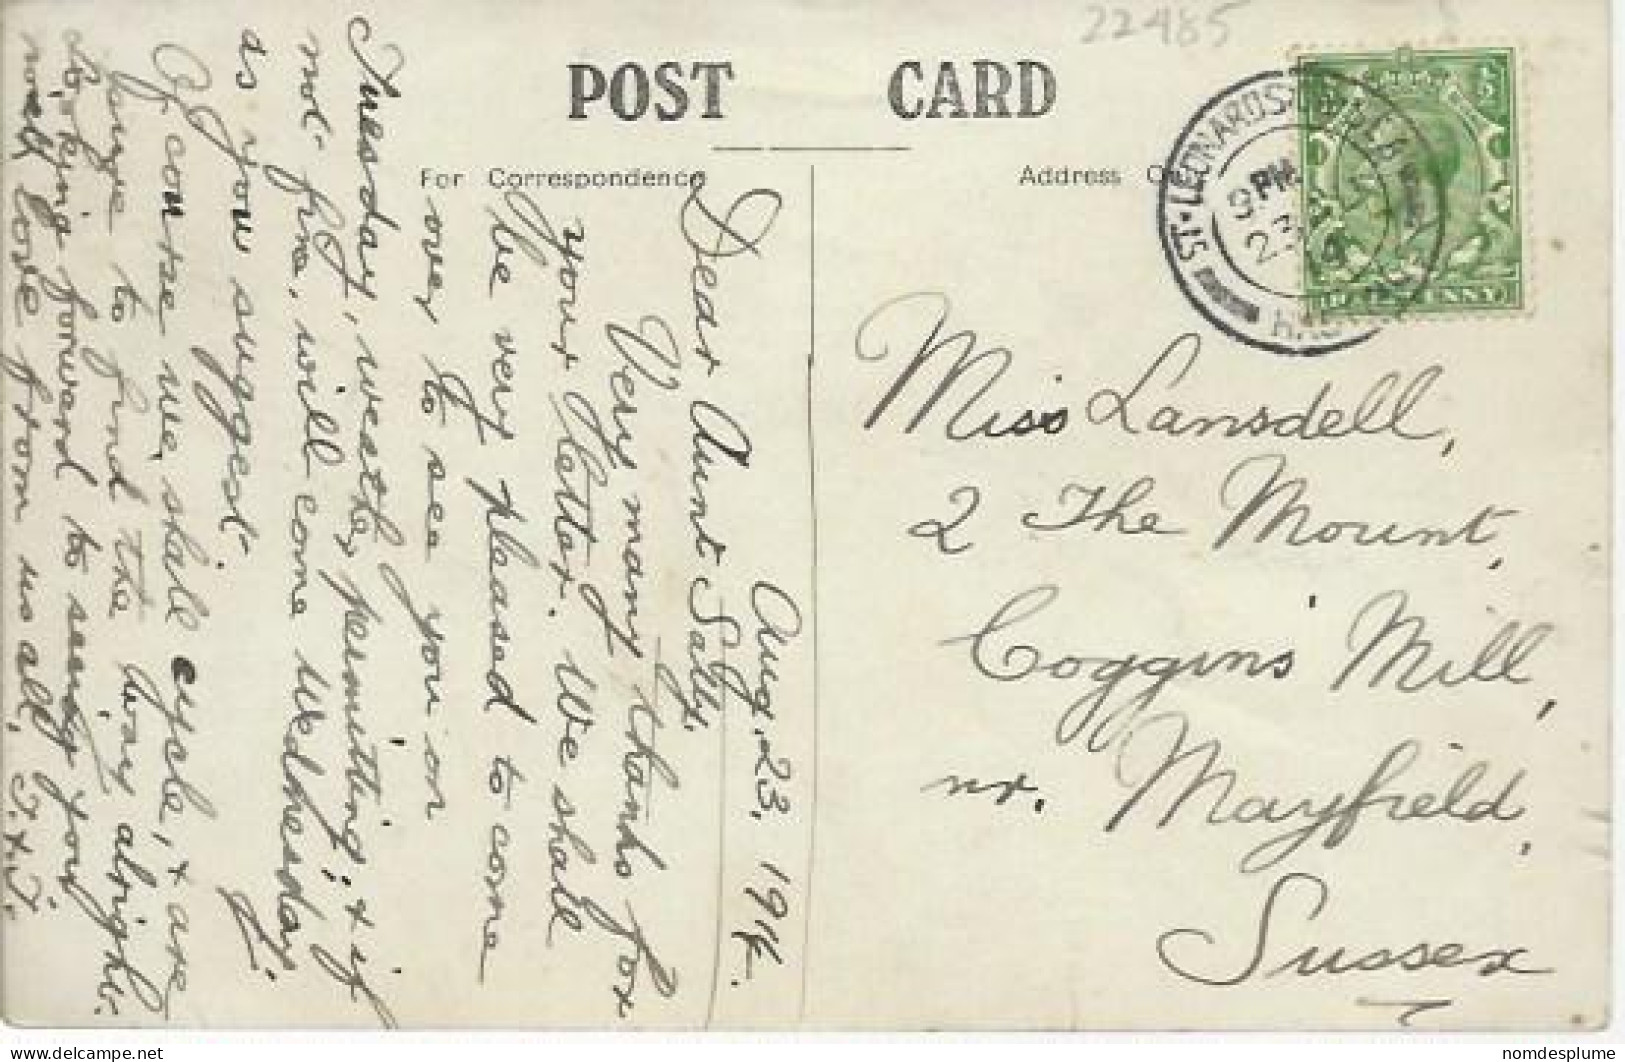 22485
POST CARD
For Correspondence
Address Only
ST. LEONARDS
9 PM
23
14
HALFPENNY
Aug. 23, 1914.
Dear Aunt Sally,
Very many thanks for
your letter. We shall
be very pleased to come
over to see you on
Tuesday, weather permitting; & if
not fine, will come Wednesday
as you suggest.
Of course we shall cycle, & are
sure to find the way alright.
Looking forward to seeing you
with love from us all,
Miss Lansdell,
2 The Mount,
Coggins Mill,
nr. Mayfield,
Sussex
nomdesplume